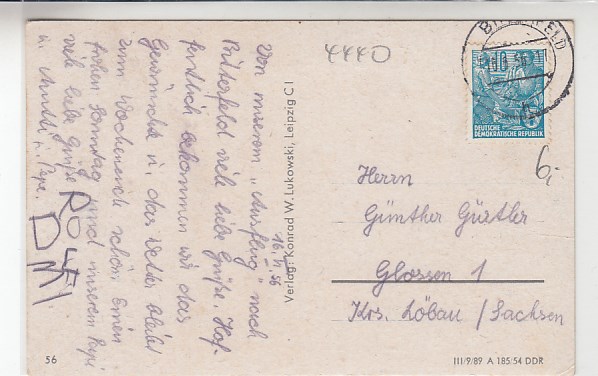 4440
BITTERFELD
DEUTSCHE
DEMOKRATISCHE REPUBLIK
16. VI. 56
Von unserem "Ausflug" nach
Bitterfeld viele liebe Grüße. Hof-
fentlich bekommen wir das
Gewünschte u. das Wetter bleibt
zum Wochenende schön. Einen
frohen Sonntag und unserem
viele liebe Grüße
u. Mutti u.
ROLF
Verlag: Konrad W. Lukowski, Leipzig C 1
6,-
Herrn
Günther Gürtler
Glossen 1
Krs. Löbau / Sachsen
56
III/9/89 A 185/54 DDR